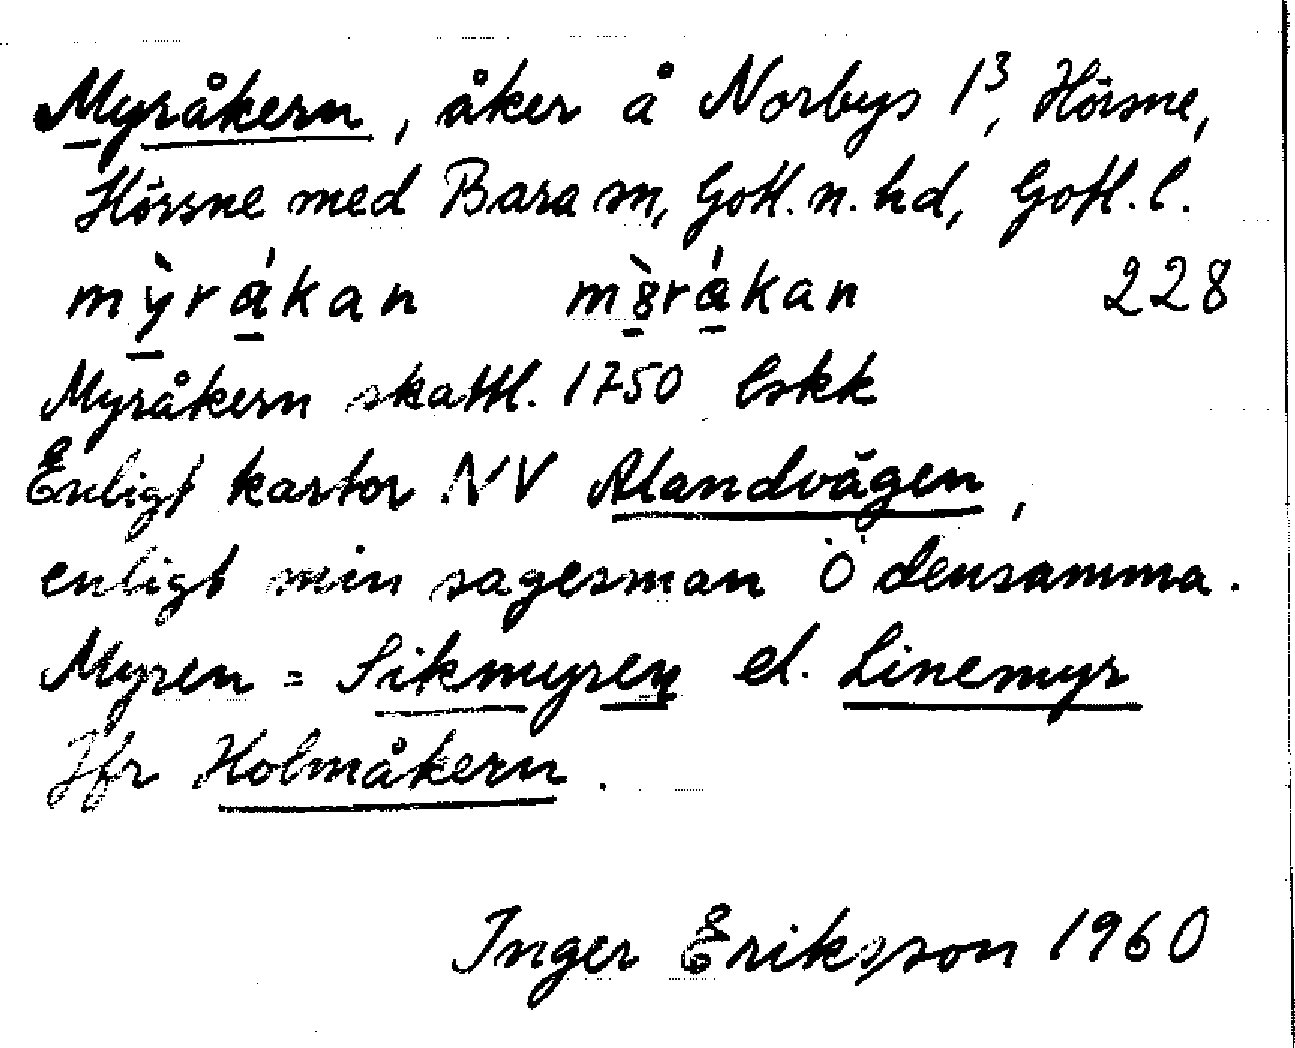 Myråkern, åker å Norbys 1³, Hörsne,
Hörsne med Bara sn, Gotl. n. hd, Gotl. l.
mỳrákan m8̀rákan 228
Myråkern skattl. 1750 lskk
Enligt kartor NV Alandvägen,
enligt min sagesman Ö densamma.
Myren = Sikmyren el. Linemyr
Jfr Holmåkern.
Inger Eriksson 1960